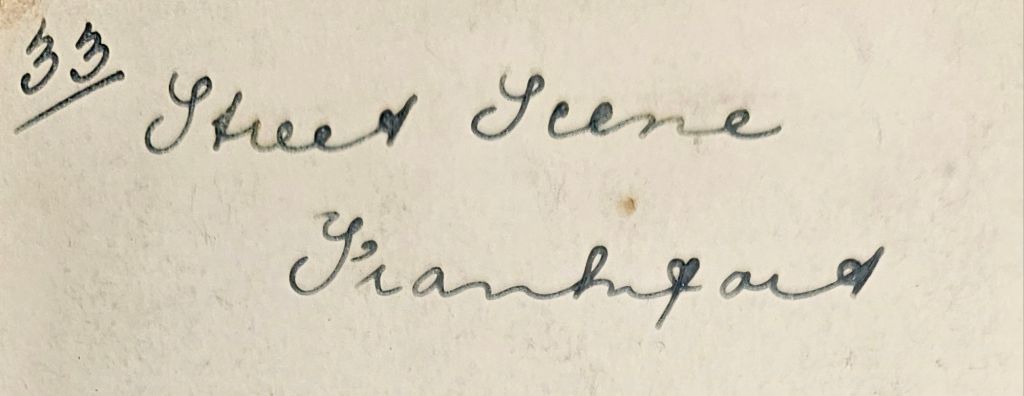 33
Street Scene
Frankfort